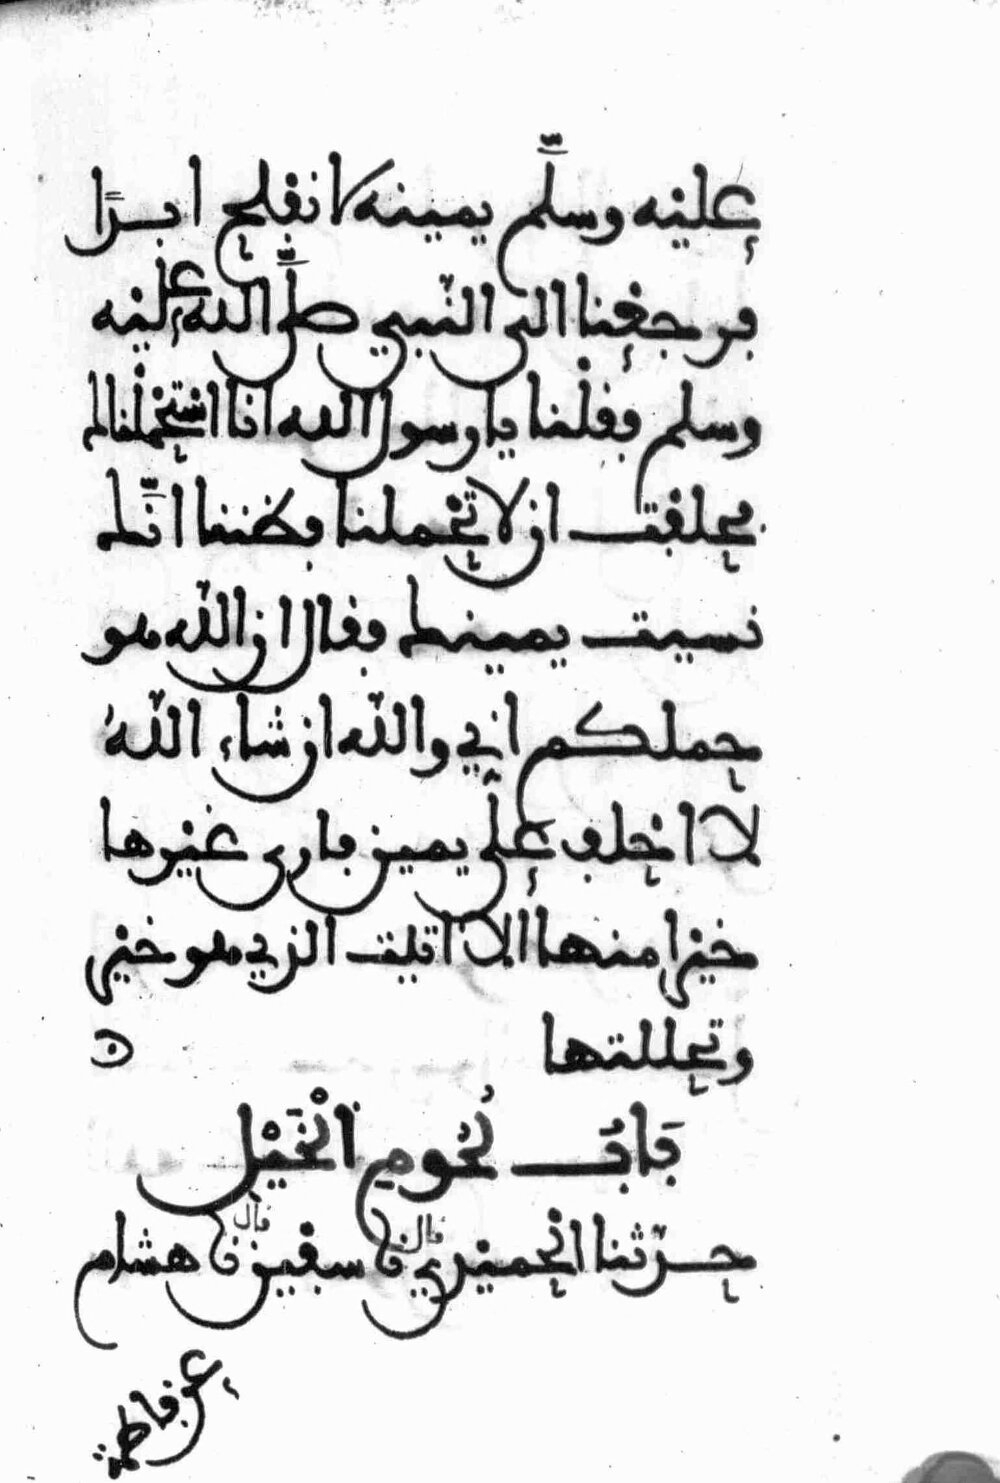 عليه وسلّم يمينه لا نفلح ابدًا
فرجعنا الى النّبي صلّى الله عليه
وسلم فقلنا يا رسول الله انا استحملناك
فحلفت ان لا تحملنا فظننا انّك
نسيت يمينك فقال ان اللّه هو
حملكم اني واللّه ان شاء اللّهُ
لا احلف على يمين فارى غيرها
خيرا منها الا اتيت الذي هو خير
وتحللتها
بَابُ لُحوم الْخَيْل
حدّثنا الحميدي قال نا سفين قال نا هشام
عن فاطمة